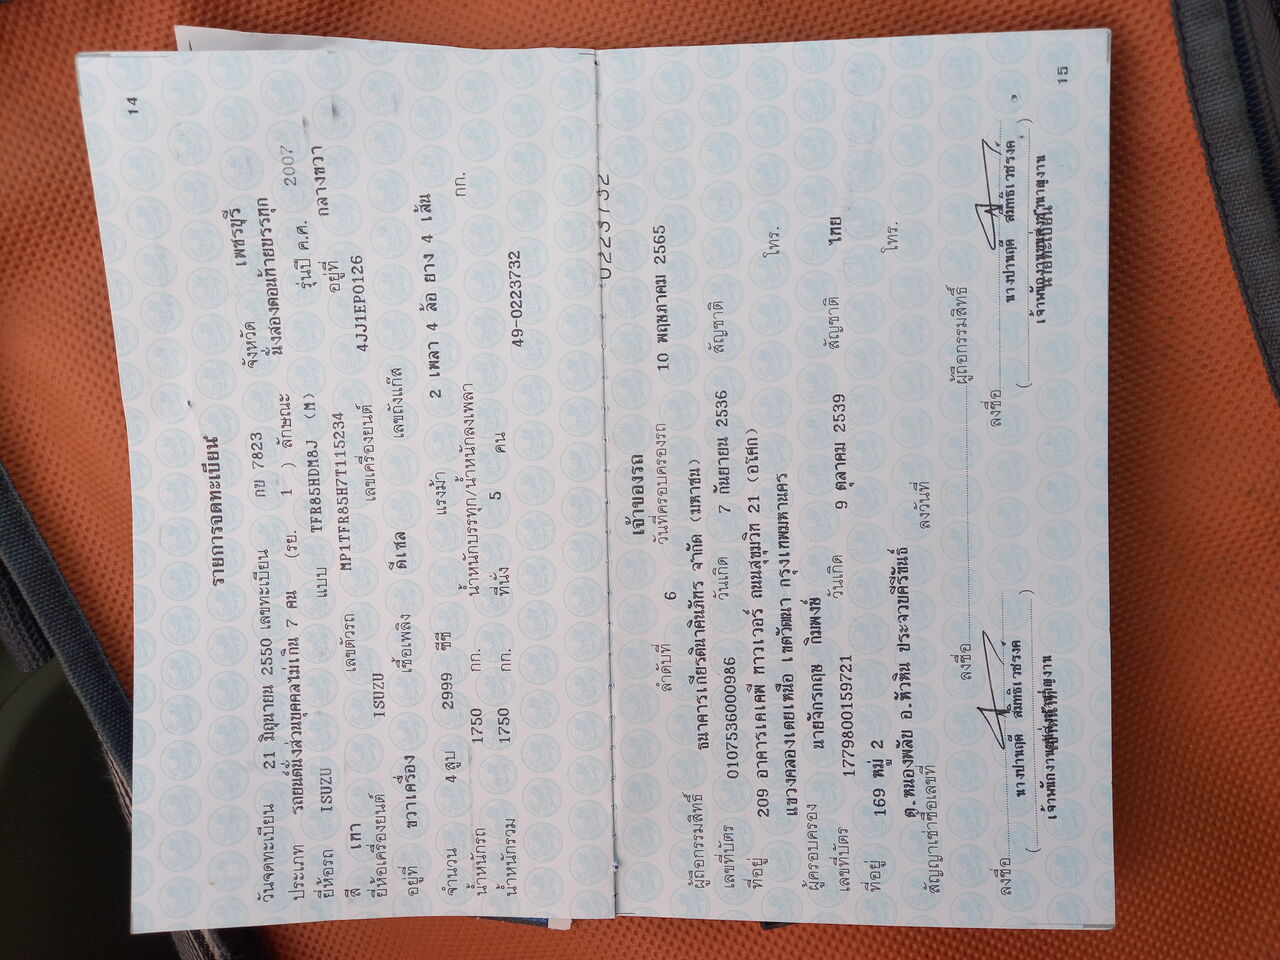 14
รายการจดทะเบียน
วันจดทะเบียน 21 มิถุนายน 2550 เลขทะเบียน กบ 7823 จังหวัด เพชรบุรี
ประเภท รถยนต์นั่งส่วนบุคคลไม่เกิน 7 คน (รย. 1 ) ลักษณะ นั่งสองตอนท้ายบรรทุก
ยี่ห้อรถ ISUZU แบบ TFR85HDM8J (M) รุ่นปี ค.ศ. 2007
สี เทา เลขตัวรถ MP1TFR85H7T115234 อยู่ที่ กลางขวา
ยี่ห้อเครื่องยนต์ ISUZU เลขเครื่องยนต์ 4JJ1EP0126
อยู่ที่ ขวาเครื่อง เชื้อเพลิง ดีเซล เลขถังแก๊ส
จำนวน 4 สูบ 2999 ซีซี แรงม้า 2 เพลา 4 ล้อ ยาง 4 เส้น
น้ำหนักรถ 1750 กก. น้ำหนักบรรทุก/น้ำหนักลงเพลา กก.
น้ำหนักรวม 1750 กก. ที่นั่ง 5 คน
49-0223732
0223732
เจ้าของรถ
ลำดับที่ 6 วันที่ครอบครองรถ 10 พฤษภาคม 2565
ผู้ถือกรรมสิทธิ์ ธนาคารเกียรตินาคินภัทร จำกัด (มหาชน)
เลขที่บัตร 0107536000986 วันเกิด 7 กันยายน 2536 สัญชาติ
ที่อยู่ 209 อาคารเคเคพี ทาวเวอร์ ถนนสุขุมวิท 21 (อโศก) โทร.
แขวงคลองเตยเหนือ เขตวัฒนา กรุงเทพมหานคร
ผู้ครอบครอง นายจักรกฤษ กิมพงษ์
เลขที่บัตร 1779800159721 วันเกิด 9 ตุลาคม 2539 สัญชาติ ไทย
ที่อยู่ 169 หมู่ 2
ต.หนองพลับ อ.หัวหิน ประจวบคีรีขันธ์ โทร.
สัญญาเช่าซื้อเลขที่ ลงวันที่
ลงชื่อ ผู้ถือกรรมสิทธิ์
ลงชื่อ ลงชื่อ
( นางปานฤดี สมิทธิเวชรงค ) ( นางปานฤดี สมิทธิเวชรงค )
เจ้าพนักงาน เจ้าพนักงาน
นายทะเบียน
15